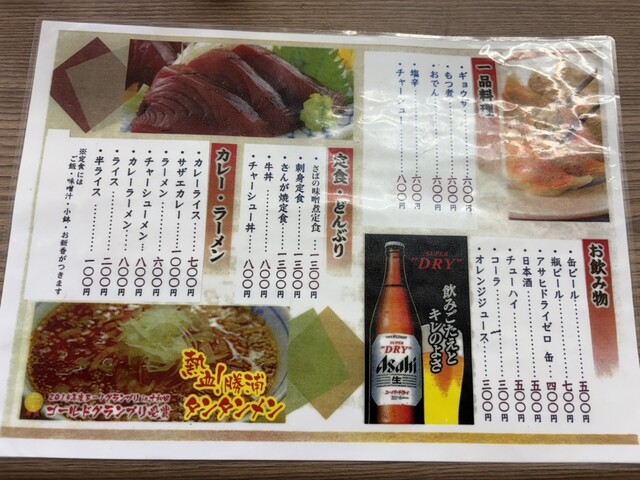 一品料理
・ギョウザ……六〇〇円
・もつ煮………六〇〇円
・おでん………六〇〇円
・塩辛…………六〇〇円
・チャーシュー…八〇〇円
お飲み物
・缶ビール………五〇〇円
・瓶ビール………七〇〇円
・アサヒドライゼロ 缶…四〇〇円
・日本酒…………五〇〇円
・チューハイ……五〇〇円
・コーラ…………三〇〇円
・オレンジジュース…三〇〇円
SUPER
"DRY"
飲みごたえと
キレのよさ
SUPER
"DRY"
Asahi
生
スーパードライ
定食・どんぶり
・さばの味噌煮定食…一三〇〇円
・刺身定食………一三〇〇円
・さんが焼定食…一三〇〇円
・牛丼……………八〇〇円
・チャーシュー丼…八〇〇円
カレー・ラーメン
・カレーライス……七〇〇円
・サザエカレー…一〇〇〇円
・ラーメン………六〇〇円
・チャーシューメン…八〇〇円
・カレーラーメン…八〇〇円
・ライス…………二〇〇円
・半ライス………一〇〇円
※定食には
ご飯・味噌汁・小鉢・お新香がつきます
熱血!勝浦
タンタンメン
ゴールドグランプリ受賞